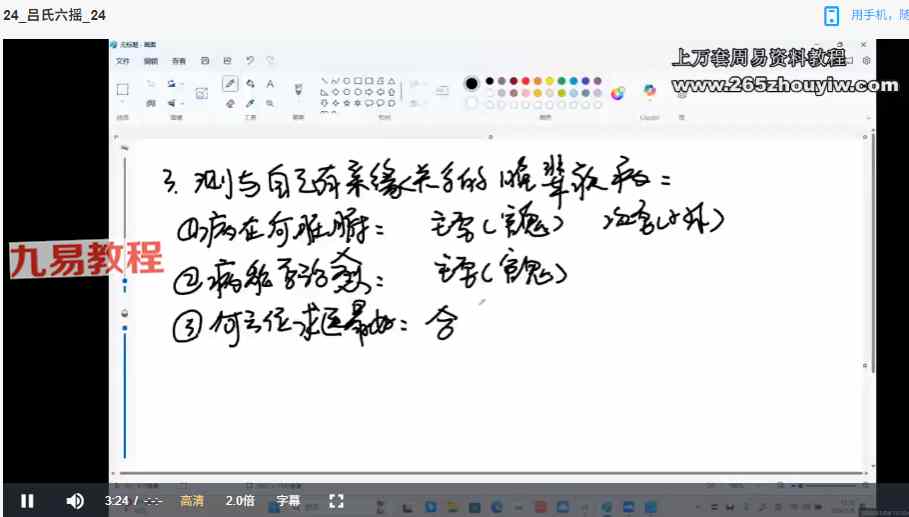 24_吕氏六摇_24
用手机，随
无标题 - 画图
文件 编辑 查看
上万套周易资料教程
www.265zhouyiw.com
3. 测与自己有亲缘关系的晚辈疾病：
①病在何脏腑： 主字(官鬼)
九易教程
②病能否治愈： 主字(官鬼)
③何方位求医最好：含
3:24 / -:- 高清 2.0倍 字幕